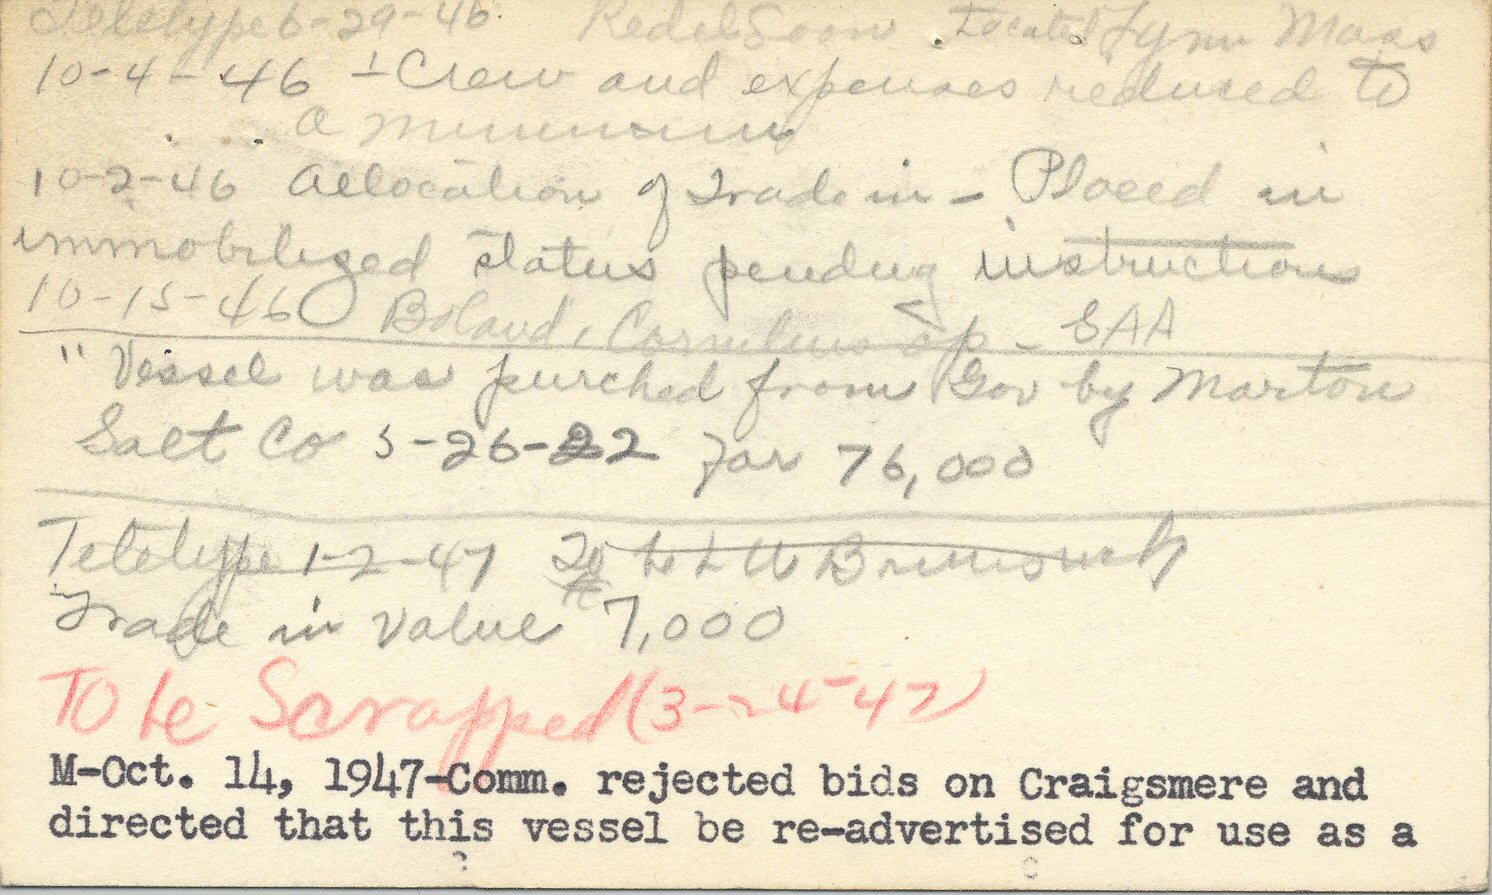 Teletype 6-29-46 Redel Located Lynn Mass
10-4-46 - Crew and expenses reduced to
a minimum
10-2-46 Allocation of Trade in - Placed in
immobilized status pending instructions
10-15-46 Boland, Cornelius op - GAA
"Vessel was purched from Gov by Morton
Salt Co 5-26-22 for 76,000
Teletype 1-2-47 To be Brunswick
Trade in Value 7,000
To be Scrapped (3-24-47)
M-Oct. 14, 1947-Comm. rejected bids on Craigsmere and
directed that this vessel be re-advertised for use as a